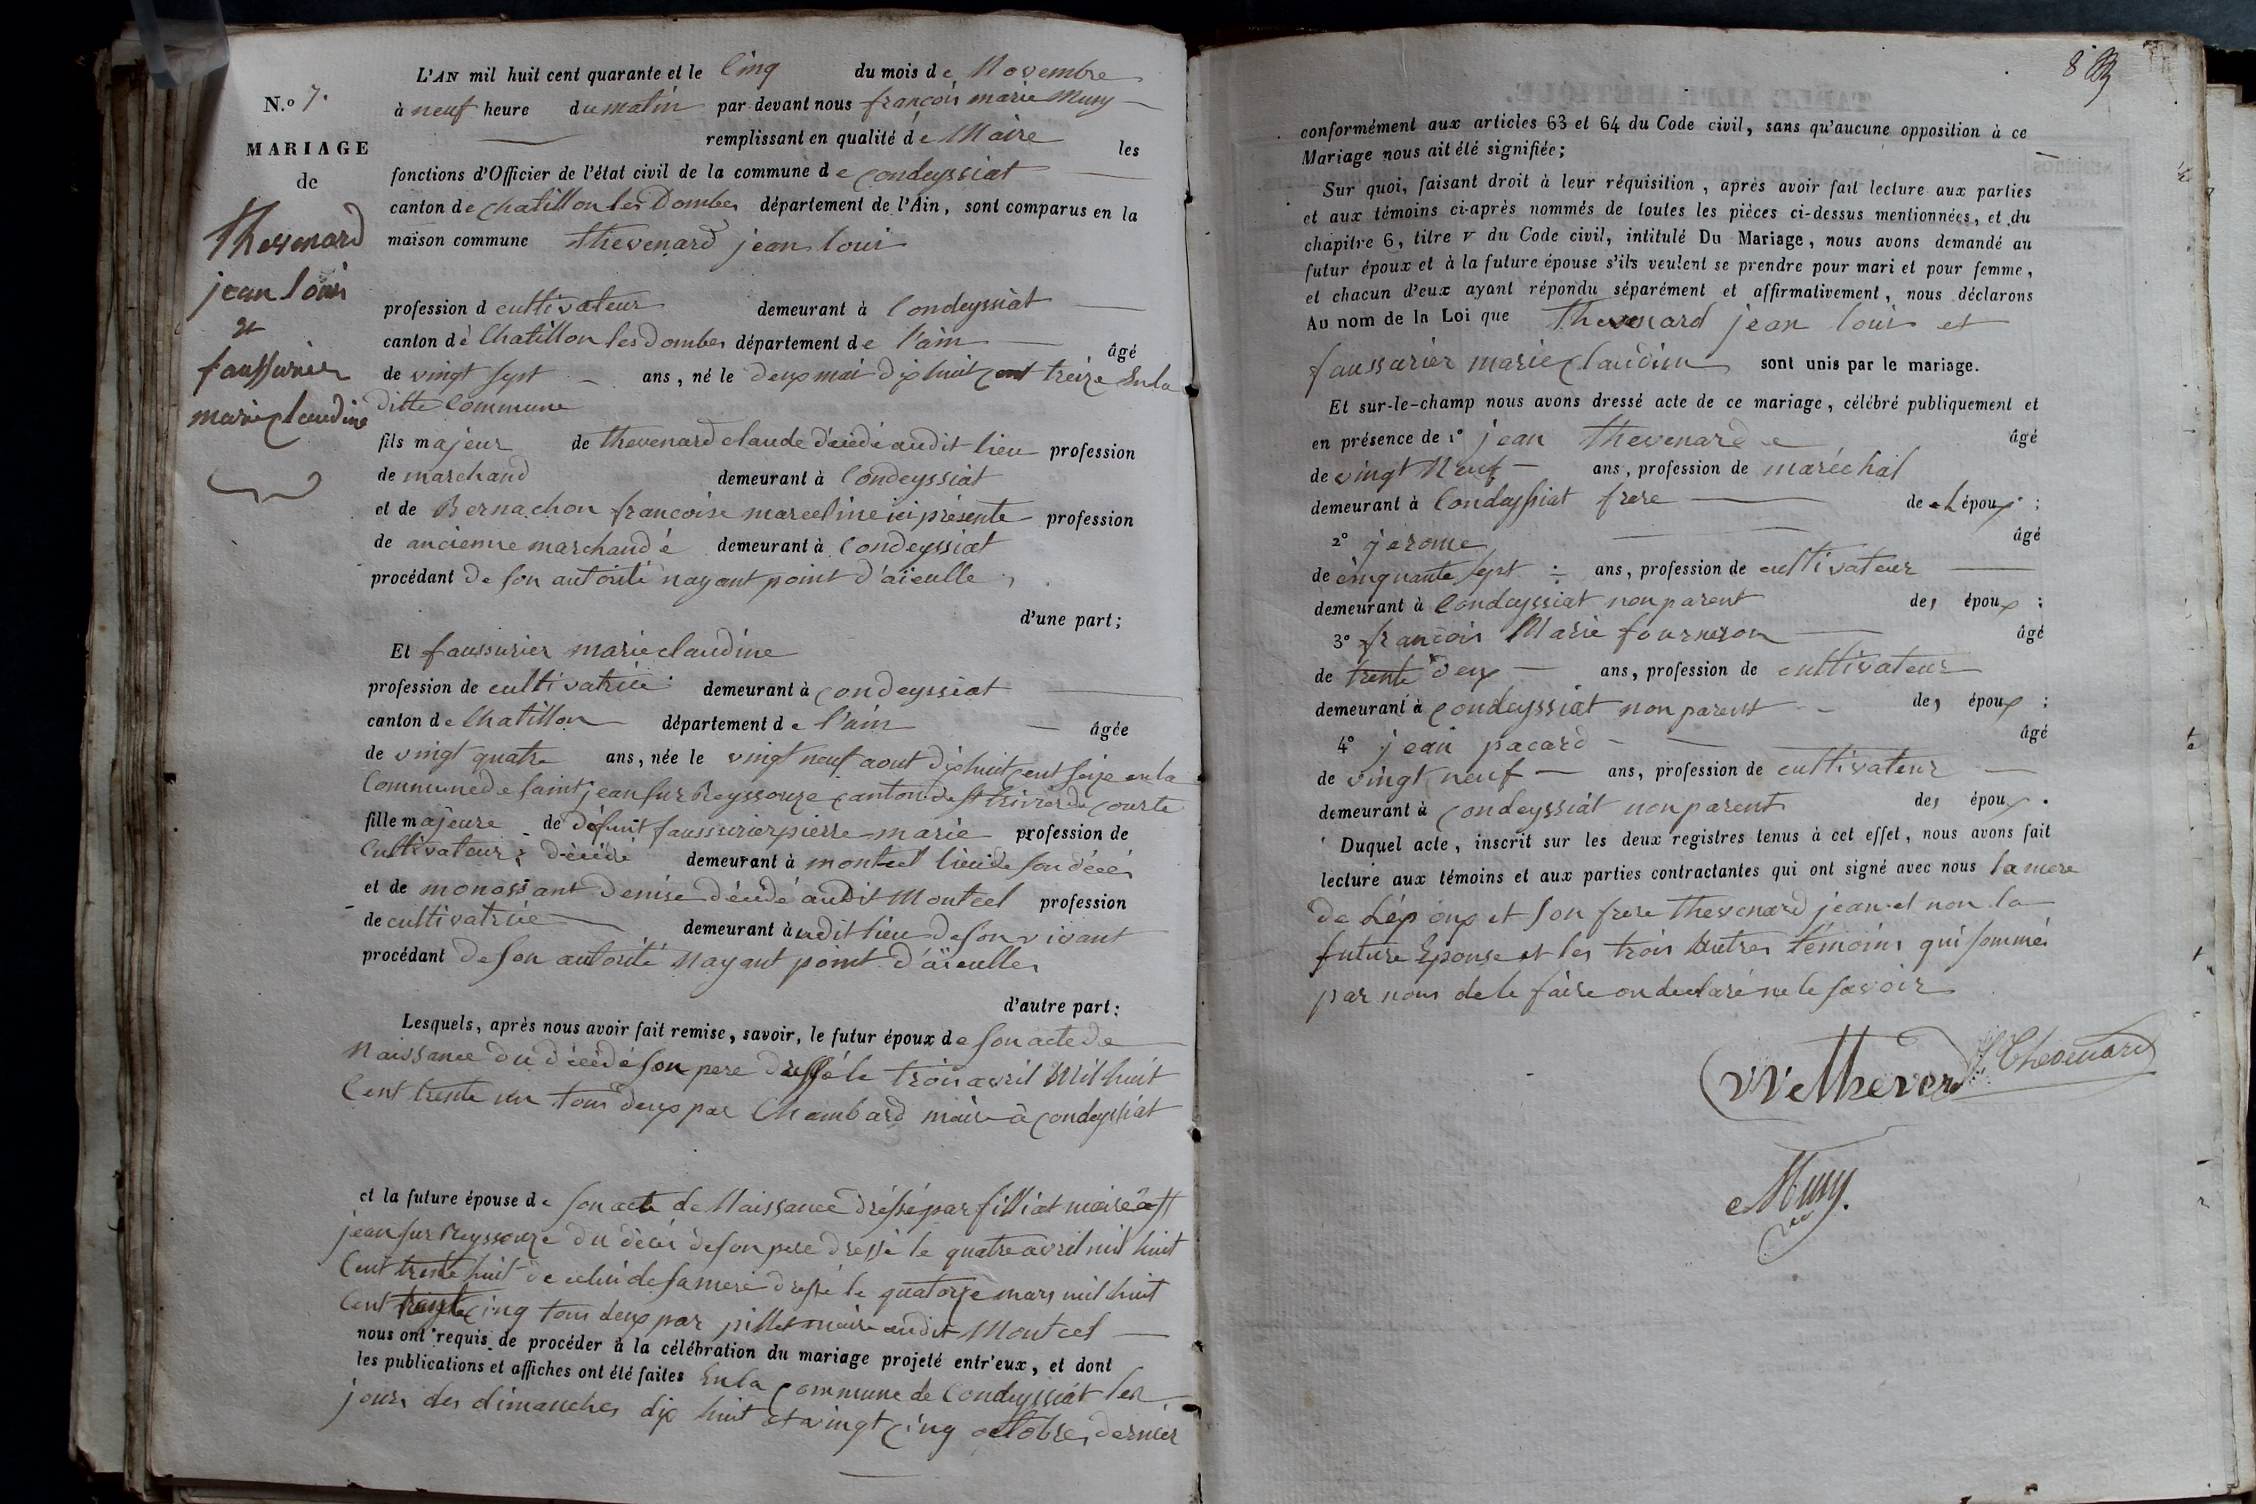 N.o 7.
MARIAGE
de
Thevenard
jean louis
et
faussurier
marie claudine
L'AN mil huit cent quarante et le Cinq du mois de Novembre
à neuf heure du matin par-devant nous françois marie Muny
remplissant en qualité de Maire les
fonctions d'Officier de l'état civil de la commune de Condeyssiat
canton de Chatillon les Dombes département de l'Ain, sont comparus en la
maison commune thevenard jean louis
profession d cultivateur demeurant à Condeyssiat
canton de Chatillon les dombes département de l'ain âgé
de vingt sept ans, né le deux mai dix huit cent treize En la
ditte Commune
fils majeur de thevenard claude décédé audit lieu profession
de marchand demeurant à Condeyssiat
et de Bernachon françoise marceline ici présente profession
de ancienne marchande demeurant à Condeyssiat
procédant de son autorité nayant point d'aïeulle
d'une part;
Et faussurier marie claudine
profession de cultivatrice demeurant à Condeyssiat
canton de Chatillon département de l'ain âgée
de vingt quatre ans, née le vingt neuf aout dix huit cent seize en la
Commune de saint jean sur Reyssouze canton de st trivier de courte
fille majeure de défunt faussurier pierre marie profession de
Cultivateur; décédé demeurant à montcel lieu de son décés
et de monossant denise décédé audit Montcel profession
de cultivatrice demeurant à udit lieu de son vivant
procédant de son autorité Nayant point d'aïeulles
d'autre part:
Lesquels, après nous avoir fait remise, savoir, le futur époux de son acte de
Naissance du décédé son pere dressé le trois avril Mil huit
Cent trente un tous deux par Chambard maire à Condeyssiat
et la future épouse de son acte de Naissance dréssé par filliat maire à st
jean sur Reyssouze du décés de son pere dressé le quatre avril mil huit
Cent trente huit de celui de sa mere dressé le quatorze mars mil huit
Cent trente cinq tous deux par pillet maire audit Montcel
nous ont requis de procéder à la célébration du mariage projeté entr'eux, et dont
les publications et affiches ont été faites En la commune de Condeyssiat les
jours des dimanches dix huit et vingt cinq octobre, dernier
8
conformément aux articles 63 et 64 du Code civil, sans qu'aucune opposition à ce
Mariage nous ait été signifiée;
Sur quoi, faisant droit à leur réquisition, après avoir fait lecture aux parties
et aux témoins ci-après nommés de toutes les pièces ci-dessus mentionnées, et du
chapitre 6, titre v du Code civil, intitulé Du Mariage, nous avons demandé au
futur époux et à la future épouse s'ils veulent se prendre pour mari et pour femme,
et chacun d'eux ayant répondu séparément et affirmativement, nous déclarons
Au nom de la Loi que Thevenard jean louis et
faussarier marie Claudine sont unis par le mariage.
Et sur-le-champ nous avons dressé acte de ce mariage, célébré publiquement et
en présence de 1° jean thevenard âgé
de vingt Neuf ans, profession de maréchal
demeurant à Condeyssiat frere de Lépoux;
2° jerome âgé
de cinquante sept ans, profession de cultivateur
demeurant à Condeyssiat non parent des époux;
3° françois Marie fourneron âgé
de trente deux ans, profession de cultivateur
demeurant à Condeyssiat non parent des époux;
4° jean pacard âgé
de vingt neuf ans, profession de cultivateur
demeurant à Condeyssiat non parent des époux.
Duquel acte, inscrit sur les deux registres tenus à cet effet, nous avons fait
lecture aux témoins et aux parties contractantes qui ont signé avec nous la mere
de Lépoux et son frere thevenard jean et non la
future Epouse et les trois autres témoins qui sommés
par nous de le faire on declaré ne le savoir
Thevenard
Muny.